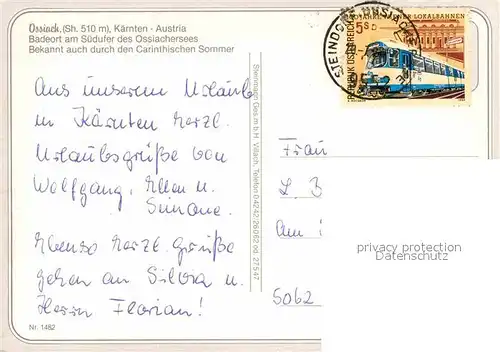 Ossiach, (Sh. 510 m), Kärnten - Austria
Badeort am Südufer des Ossiachersees
Bekannt auch durch den Carinthischen Sommer
Aus unserem Urlaub
in Kärnten herzl.
Urlaubsgrüße von
Wolfgang, Ellen u.
Simone.
Ebenso herzl. Grüße
gehen an Silvia u.
Herrn Florian!
Nr. 1482
Steinbauer Ges.m.b.H. Villach, Telefon 04242-26062 od. 27547
STEINDORF
WIENER LOKALBAHNEN
5 S
REPUBLIK ÖSTERREICH
Frau
L. B
Am
5062
privacy protection
Datenschutz